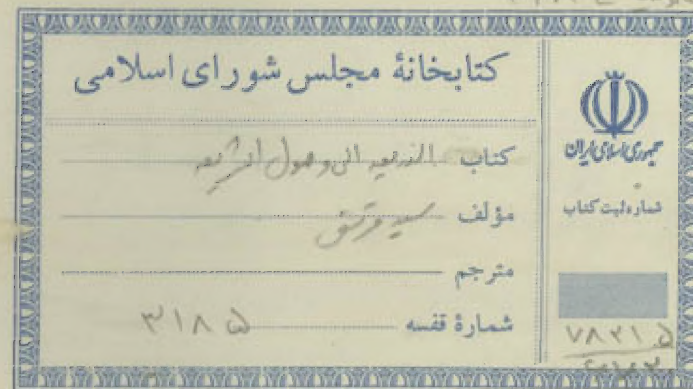 کتابخانهٔ مجلس شورای اسلامی
کتاب الذریعه الی وصول الشریعه
مؤلف سید مرتضی
مترجم
شمارهٔ قفسه ۳۱۸۵
جمهوری اسلامی ایران
شماره ثبت کتاب